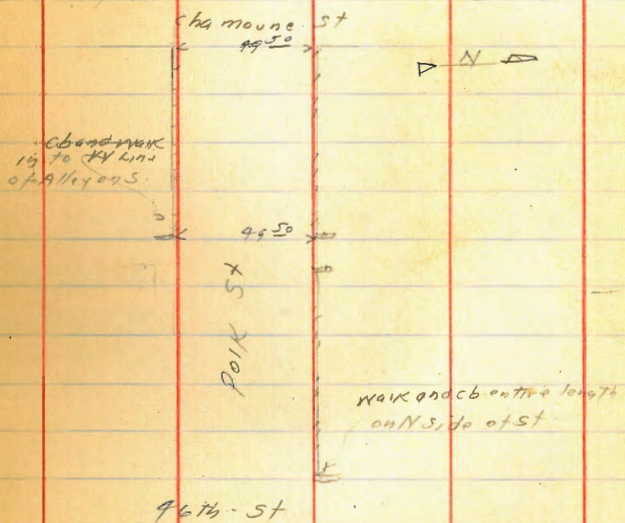 Chamoune St
49 50
N
cb and walk
in to W Line
of Alley on S.
49 50
Polk St
walk and cb entire length
on N side of St
46th - St